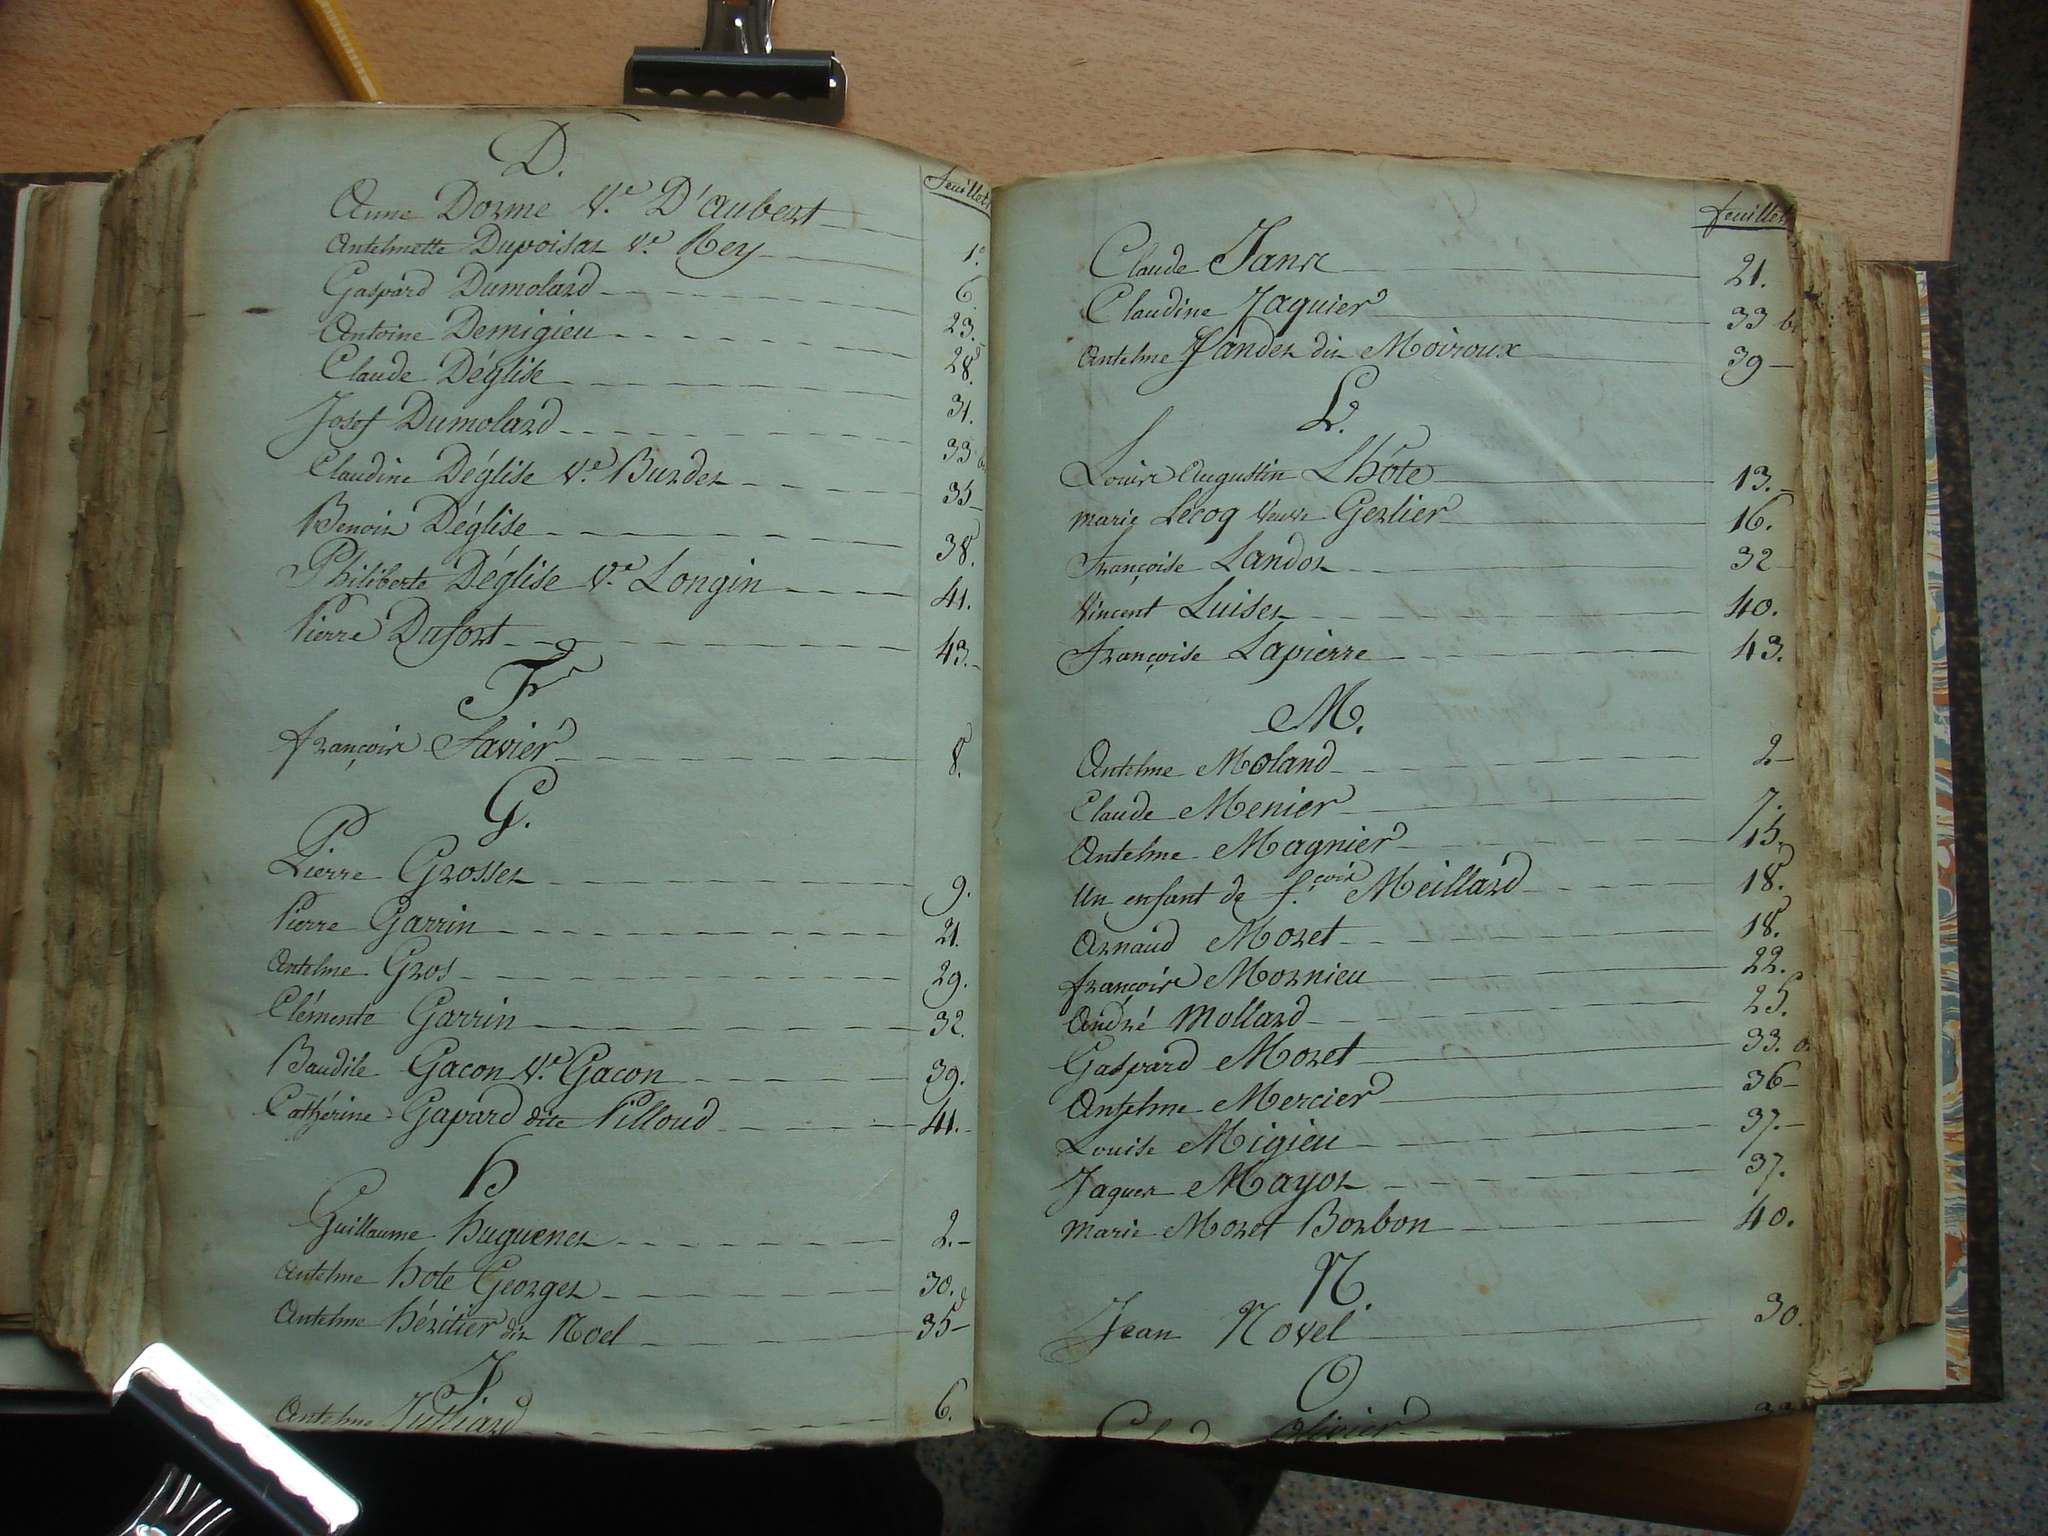 D.
feuillets
Anne Dorme V.e D'aubert 1.
Antelmette Dupoisat V.e Rey 6
Gaspard Dumolard 23.
Antoine Demigieu 28.
Claude Déglise 31.
Josef Dumolard 33 b
Claudine Déglise V.e Burdet 35
Benoit Déglise 38.
Philiberte Déglise V.e Longin 41.
Pierre Dufort 43.
F
françois Favier 8.
G.
Pierre Grosset 9.
Pierre Garrin 21.
Antelme Gros 29.
Clémente Garrin 32.
Baudile Gacon V.e Gacon 39.
Cathérine Gapard dite Pilloud 41.
h
Guillaume huguenet 2.
Antelme hote Georges 30.
Antelme héritier dit Noel 35
J.
Antelme Julliard 6.
feuillets
Claude Janet 21.
Claudine Jaquier 33 b
Antelme Jandet dit Moiroux 39
L.
Louis Augustin Lhôte 13.
Marie Lécoq veuve Gerlier 16.
Françoise Landot 32
Vincent Luiset 40.
Françoise Lapierre 43.
M.
Antelme Moland 2
Claude Menier 7.
Antelme Magnier 15.
Un enfant de f.çois Meillard 18.
Arnaud Moret 18.
françois Mornieu 22.
André Mollard 25.
Gaspard Moret 33.
Antelme Mercier 36
Louise Migieu 37.
Jaques Mayot 37.
Marie Moret Borbon 40.
N.
Jean Novel 30.
O
olivier